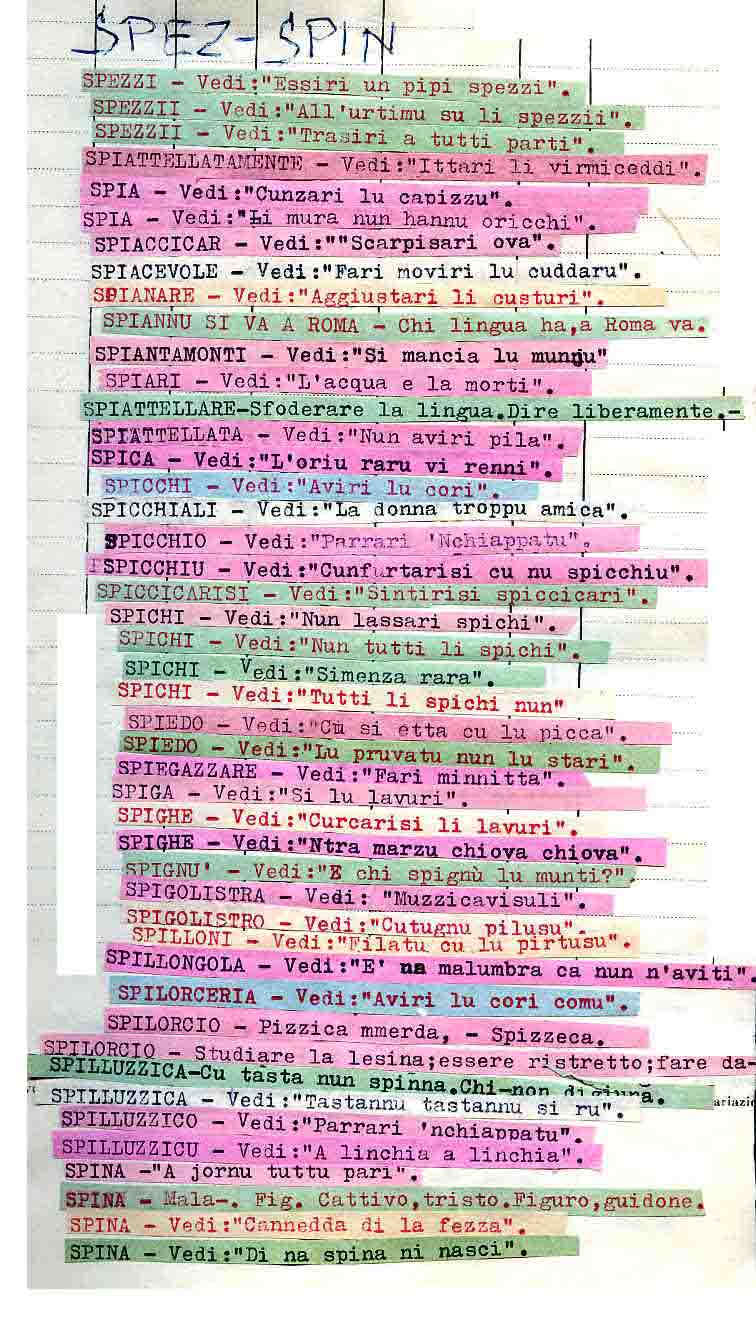 SPEZ-SPIN
SPEZZI - Vedi:"Essiri un pipi spezzi".
SPEZZII - Vedi:"All'urtimu su li spezzii".
SPEZZII - Vedi:"Trasiri a tutti parti".
SPIATTELLATAMENTE - Vedi:"Ittari li virmiceddi".
SPIA - Vedi:"Cunzari lu capizzu".
SPIA - Vedi:"Li mura nun hannu oricchi".
SPIACCICAR - Vedi:""Scarpisari ova".
SPIACEVOLE - Vedi:"Fari moviri lu cuddaru".
SPIANARE - Vedi:"Aggiustari li custuri".
SPIANNU SI VA A ROMA - Chi lingua ha,a Roma va.
SPIANTAMONTI - Vedi:"Si mancia lu munnu"
SPIARI - Vedi:"L'acqua e la morti".
SPIATTELLARE-Sfoderare la lingua.Dire liberamente.-
SPIATTELLATA - Vedi:"Nun aviri pila".
SPICA - Vedi:"L'oriu raru vi renni".
SPICCHI - Vedi:"Aviri lu cori".
SPICCHIALI - Vedi:"La donna troppu amica".
SPICCHIO - Vedi:"Parrari 'Nchiappatu".
SPICCHIU - Vedi:"Cunfurtarisi cu nu spicchiu".
SPICCICARISI - Vedi:"Sintirisi spiccicari".
SPICHI - Vedi:"Nun lassari spichi".
SPICHI - Vedi:"Nun tutti li spichi".
SPICHI - Vedi:"Simenza rara".
SPICHI - Vedi:"Tutti li spichi nun"
SPIEDO - Vedi:"Cu si etta cu lu picca".
SPIEDO - Vedi:"Lu pruvatu nun lu stari".
SPIEGAZZARE - Vedi:"Fari minnitta".
SPIGA - Vedi:"Si lu lavuri".
SPIGHE - Vedi:"Curcarisi li lavuri".
SPIGHE - Vedi:"Ntra marzu chiova chiova".
SPIGNU' - Vedi:"E chi spignù lu munti?".
SPIGOLISTRA - Vedi: "Muzzicavisuli".
SPIGOLISTRO - Vedi:"Cutugnu pilusu".
SPILLONI - Vedi:"Filatu cu lu pirtusu".
SPILLONGOLA - Vedi:"E' na malumbra ca nun n'aviti".
SPILORCERIA - Vedi:"Aviri lu cori comu".
SPILORCIO - Pizzica mmerda, - Spizzeca.
SPILORCIO - Studiare la lesina;essere ristretto;fare da-
SPILLUZZICA-Cu tasta nun spinna.Chi-non digiuna.
SPILLUZZICA - Vedi:"Tastannu tastannu si ru".
SPILLUZZICO - Vedi:"Parrari 'nchiappatu".
SPILLUZZICU - Vedi:"A linchia a linchia".
SPINA -"A jornu tuttu pari".
SPINA - Mala-. Fig. Cattivo,tristo.Figuro,guidone.
SPINA - Vedi:"Cannedda di la fezza".
SPINA - Vedi:"Di na spina ni nasci".